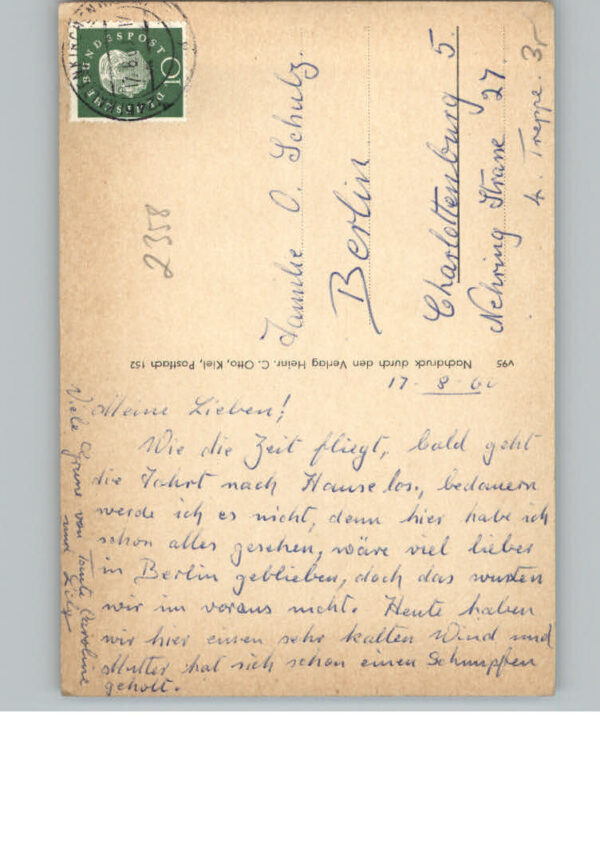 DEUTSCHE BUNDESPOST
10
2358
Familie O. Schulz.
Berlin
Charlottenburg 5.
Nehring Strasse 27.
4. Treppe.
V95 Nachdruck durch den Verlag Heinr. C. Otto, Kiel, Postfach 152
17-8-60
Meine Lieben!
Wie die Zeit fliegt, bald geht
die Fahrt nach Hause los., bedauern
werde ich es nicht, denn hier habe ich
schon alles gesehen, wäre viel lieber
in Berlin geblieben, doch das wusten
wir im voraus nicht. Heute haben
wir hier einen sehr kalten Wind und
Mutter hat sich schon einen Schnupfen
geholt.
Viele Grüsse von Tante Caroline
und